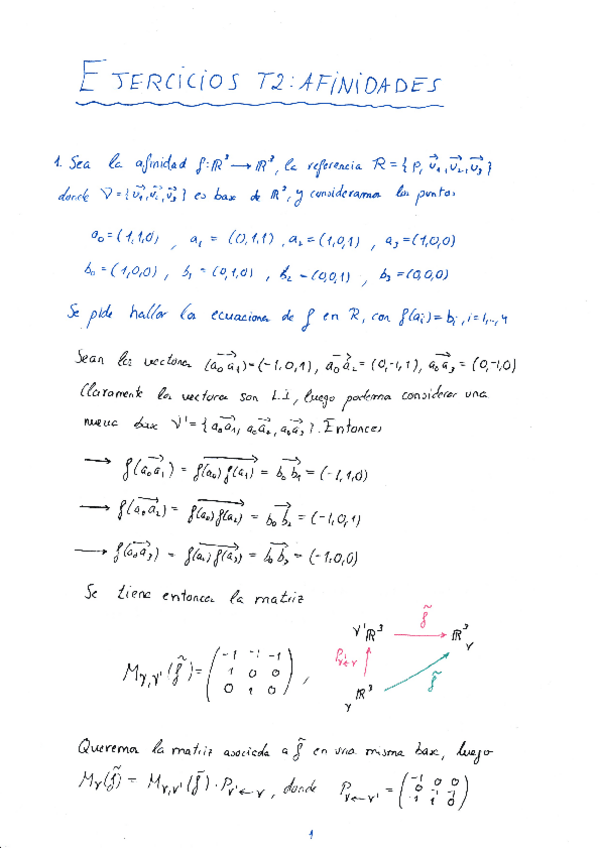 EJERCICIOS T2: AFINIDADES
1. Sea la afinidad f: ℝ³ → ℝ³, la referencia R = {P, v₁, v₂, v₃}
donde V = {v₁, v₂, v₃} es base de ℝ³, y consideramos los puntos
a₀ = (1,1,0) , a₁ = (0,1,1) , a₂ = (1,0,1) , a₃ = (1,0,0)
b₀ = (1,0,0) , b₁ = (0,1,0) , b₂ = (0,0,1) , b₃ = (0,0,0)
Se pide hallar las ecuaciones de f en R, con f(aᵢ) = bᵢ, i = 1,..,4
Sean los vectores (a₀a₁) = (-1,0,1), a₀a₂ = (0,-1,1), a₀a₃ = (0,-1,0)
Claramente los vectores son L.I, luego podemos considerar una
nueva base V' = {a₀a₁, a₀a₂, a₀a₃}. Entonces
→ f(a₀a₁) = f(a₀)f(a₁) = b₀b₁ = (-1,1,0)
→ f(a₀a₂) = f(a₀)f(a₂) = b₀b₂ = (-1,0,1)
→ f(a₀a₃) = f(a₀)f(a₃) = b₀b₃ = (-1,0,0)
Se tiene entonces la matriz
V' ℝ³ → f̃ ℝ³ V
P V'←V
V ℝ³ f̃
M V,V' (f̃) = (-1 -1 -1
1 0 0
0 1 0) ,
Queremos la matriz asociada a f̃ en una misma base, luego
M V (f̃) = M V,V' (f̃) · P V'←V , donde P V←V' = (-1 0 0
0 -1 -1
1 1 0)
1